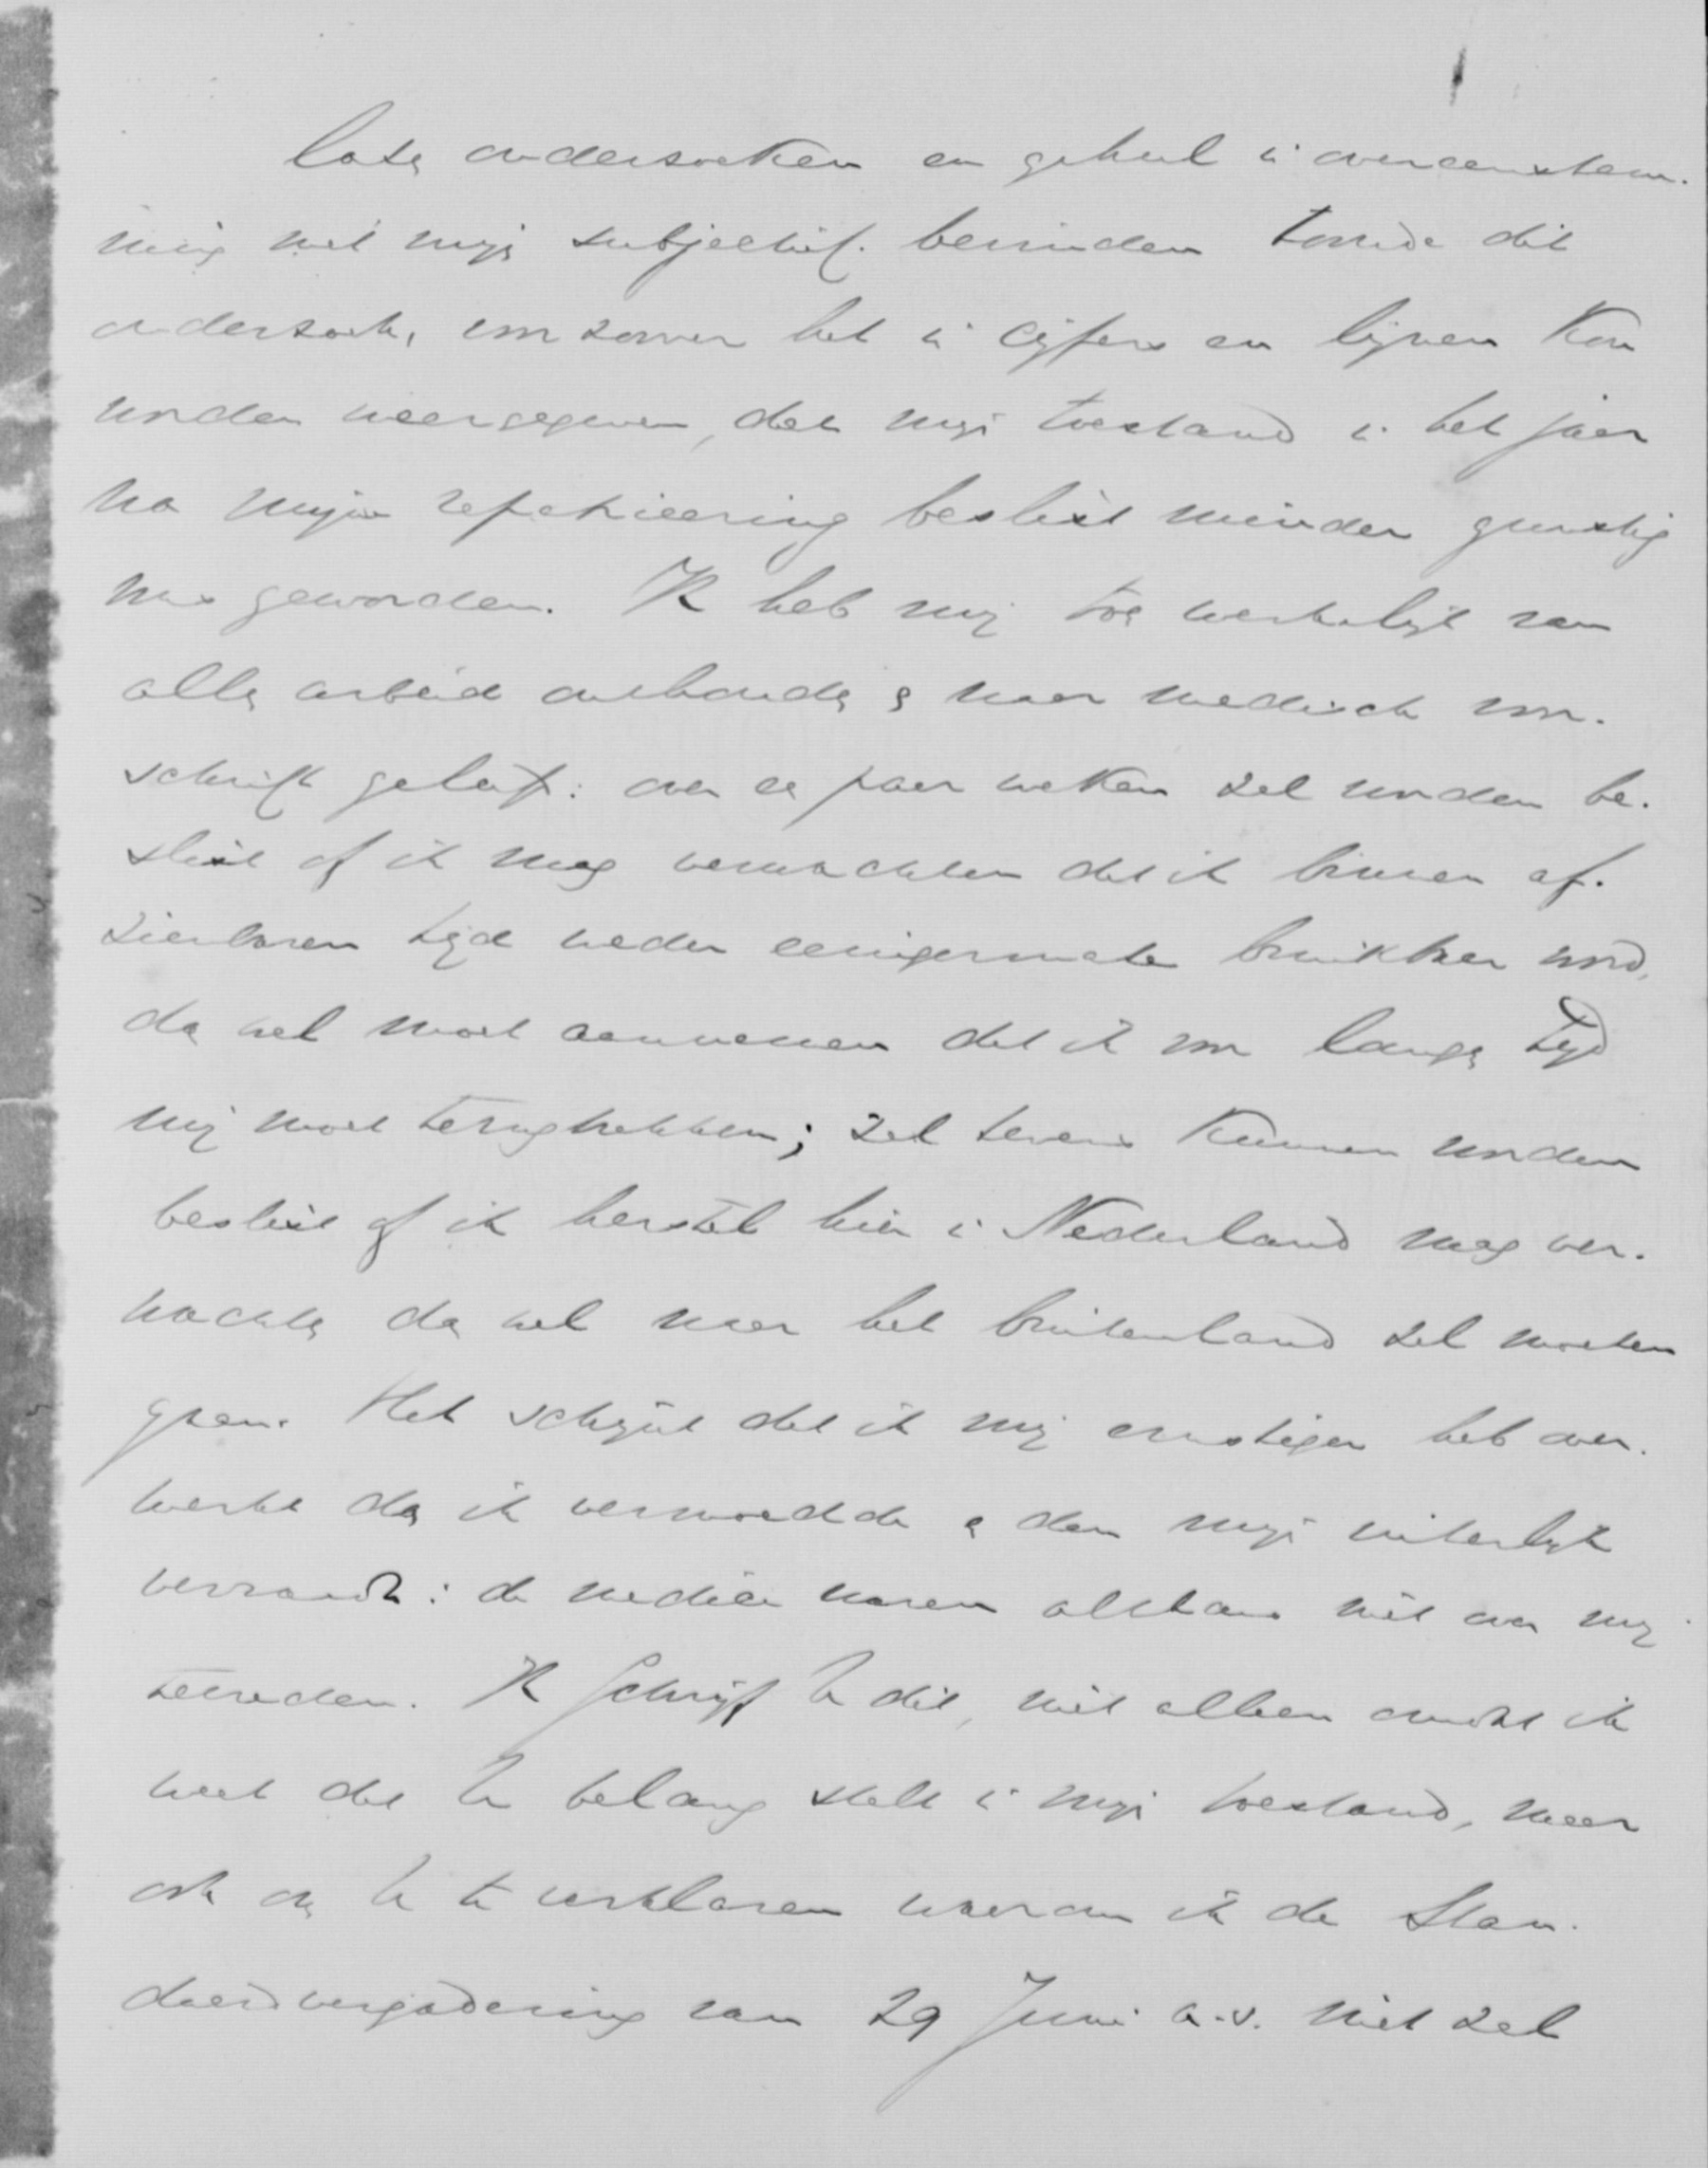 laten onderzoeken en geheel in overeenstem-
ming met mijn subjectief bevinden toonde dit
onderzoek, voor zoover het in cijfers en lijnen kon
worden weergegeven, dat mijn toestand in het jaar
na mijne repatrieering beslist minder gunstig
was geworden. Ik heb mij toen werkelijk van
allen arbeid onthouden & naar medisch voor-
schrift geleefd: over een paar weken zal worden be-
slist of ik mag verwachten dat ik binnen af-
zienbaren tijd weder eenigermate bruikbaar word,
dan wel moet aannemen dat ik voor langen tijd
mij moet terugtrekken; zal tevens kunnen worden
beslist of ik herstel hier in Nederland mag ver-
wachten dan wel naar het buitenland zal moeten
gaan. Het schijnt dat ik mij ernstiger heb over-
werkt dan ik vermoedde & dan mijn uiterlijk
verraadt: de medici waren althans niet over mij
tevreden. Ik schrijf U dit, niet alleen omdat ik
weet dat U belang stelt in mijn toestand, maar
ook om U te verklaren waarom ik de Stan-
daardvergadering van 29 Juni a.s. niet zal